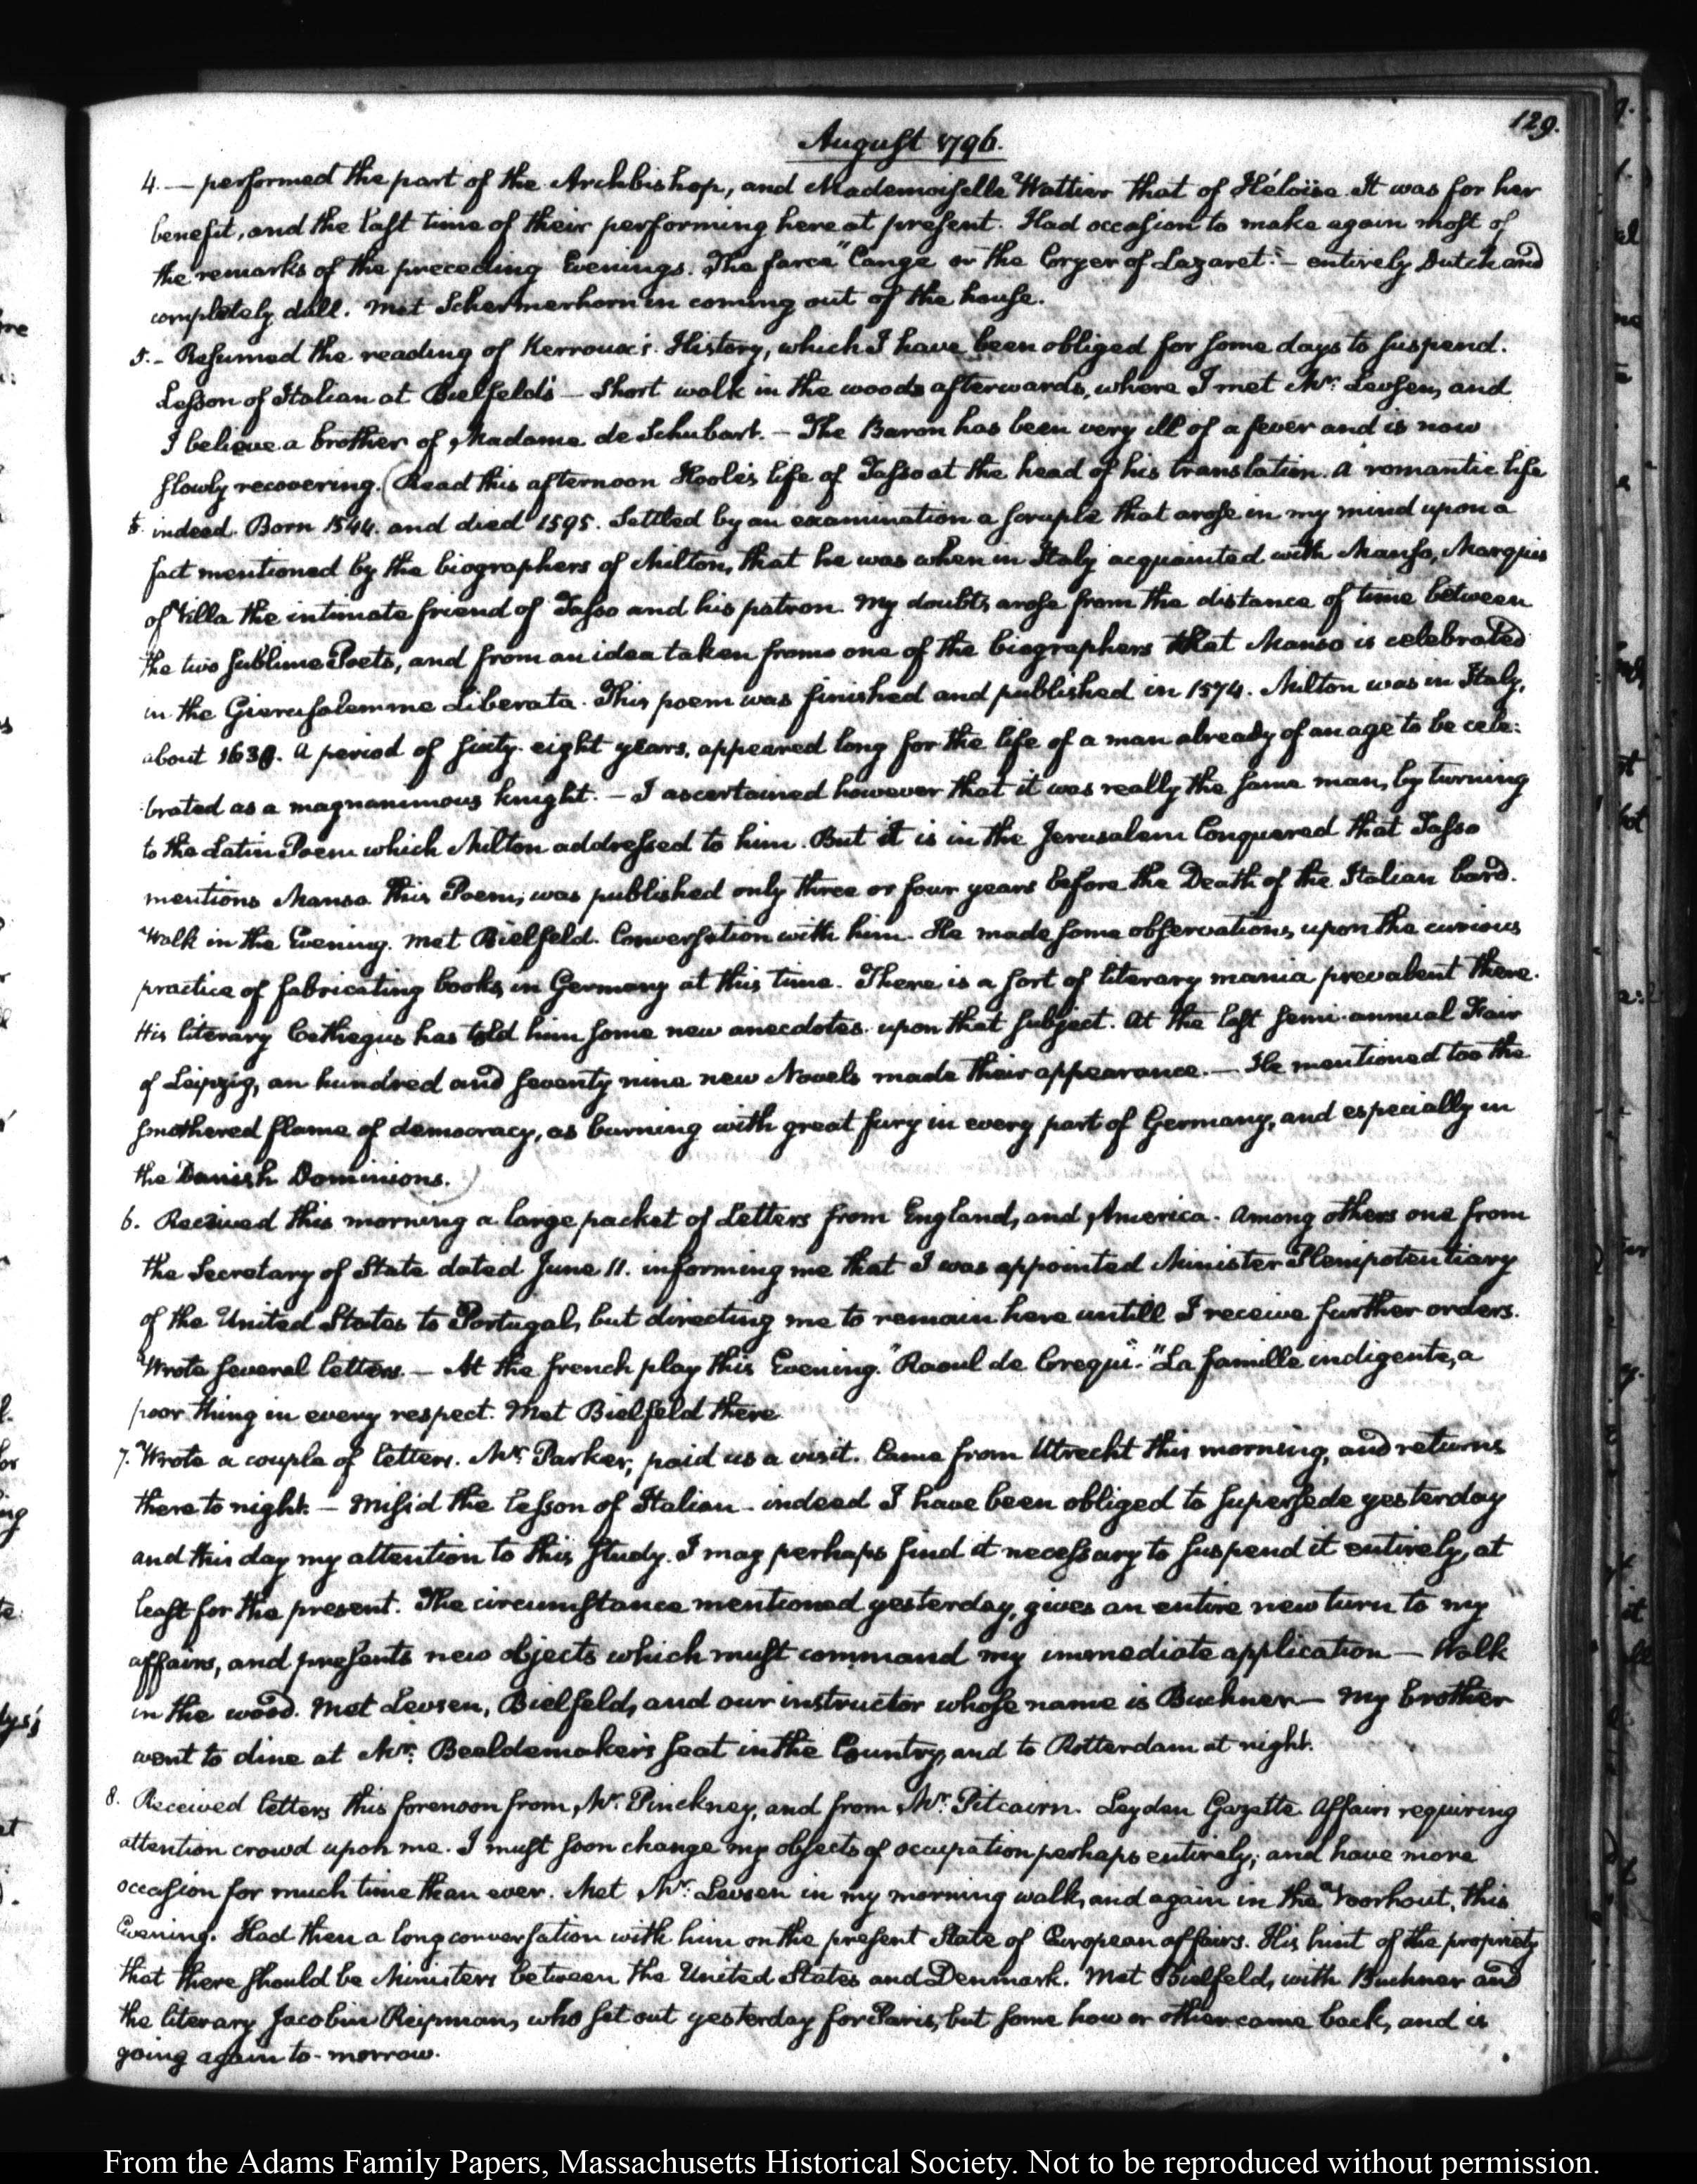 129.
August 1796.
4. — performed the part of the Archbishop, and Mademoiselle Wattier that of Héloïse. It was for her
benefit, and the last time of their performing here at present. Had occasion to make again most of
the remarks of the preceding Evenings. The farce "Cange or the Coryer of Lazaret." — entirely Dutch and
completely dull. Met Schermerhorn in coming out of the house.
5. — Resumed the reading of Kerroux's History, which I have been obliged for some days to suspend.
Lesson of Italian at Bielfeld's — Short walk in the woods afterwards, where I met Mr. Levsen, and
I believe a brother of Madame de Schubart. — The Baron has been very ill of a fever and is now
slowly recovering. (Read this afternoon Hoole's life of Tasso at the head of his translation. A romantic life
5. indeed. Born 1544. and died 1595. Settled by an examination a scruple that arose in my mind upon a
fact mentioned by the biographers of Milton, that he was when in Italy acquainted with Manso, Marquis
of Villa the intimate friend of Tasso and his patron. My doubts arose from the distance of time between
the two sublime Poets, and from an idea taken from one of the biographers that Manso is celebrated
in the Gierusalemme Liberata. This poem was finished and published in 1574. Milton was in Italy,
about 1638. A period of sixty-eight years, appeared long for the life of a man already of an age to be cele:
:brated as a magnanimous knight. — I ascertained however that it was really the same man, by turning
to the Latin Poem which Milton addressed to him. But it is in the Jerusalem Conquered that Tasso
mentions Manso. This Poem, was published only three or four years before the Death of the Italian bard.
Walk in the Evening. Met Bielfeld. Conversation with him. He made some observations, upon the curious
practice of fabricating books, in Germany at this time. There is a sort of literary mania prevalent there.
His literary Cethegus has told him some new anecdotes upon that subject. At the last semi-annual Fair
of Leipzig, an hundred and seventy nine new Novels made their appearance. — He mentioned too the
smothered flame of democracy, as burning with great fury in every part of Germany, and especially in
the Danish Dominions.)
6. Received this morning a large packet of Letters from England, and America. Among others one from
the Secretary of State dated June 11. informing me that I was appointed Minister Plenipotentiary
of the United States to Portugal, but directing me to remain here untill I receive further orders.
Wrote several letters. — At the french play this Evening. "Raoul de Crequi". "La famille indigente, a
poor thing in every respect. Met Bielfeld there.
7. Wrote a couple of letters. Mr. Parker, paid us a visit. Came from Utrecht this morning, and returns
there to night. — Miss'd the lesson of Italian — indeed I have been obliged to supersede yesterday
and this day my attention to this study. I may perhaps find it necessary to suspend it entirely, at
least for the present. The circumstance mentioned yesterday, gives an entire new turn to my
affairs, and presents new objects which must command my immediate application — Walk
in the wood. Met Levsen, Bielfeld, and our instructor whose name is Buchner — My brother
went to dine at Mr. Beeldemaker's seat in the Country, and to Rotterdam at night.
8. Received letters this forenoon from, Mr. Pinckney, and from Mr. Pitcairn. Leyden Gazette. Affairs requiring
attention crowd upon me. I must soon change my objects of occupation perhaps entirely; and have more
occasion for much time than ever. Met Mr. Levsen in my morning walk, and again in the Voorhout, this
Evening. Had then a long conversation with him on the present State of European affairs. His hint of the propriety
that there should be Ministers between the United States and Denmark. Met Bielfeld, with Buchner and
the literary Jacobin Reipman, who set out yesterday for Paris, but some how or other came back, and is
going again to-morrow.
From the Adams Family Papers, Massachusetts Historical Society. Not to be reproduced without permission.